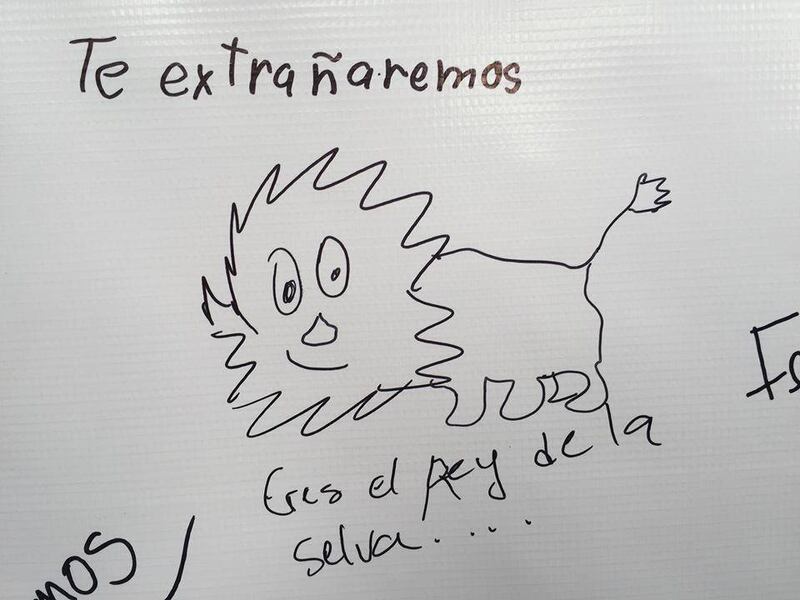 Te extrañaremos
Eres el Rey de la
selva.....